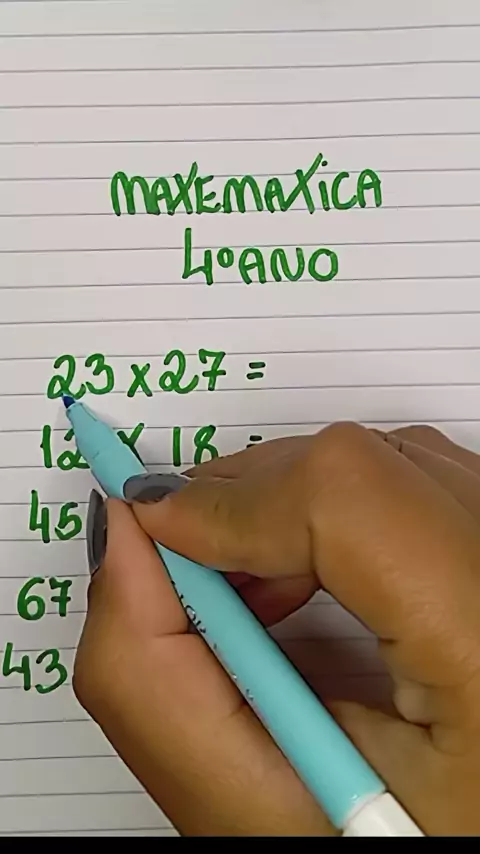 MATEMATICA
4º ANO
23 x 27 =
12 x 18 =
45
67
43